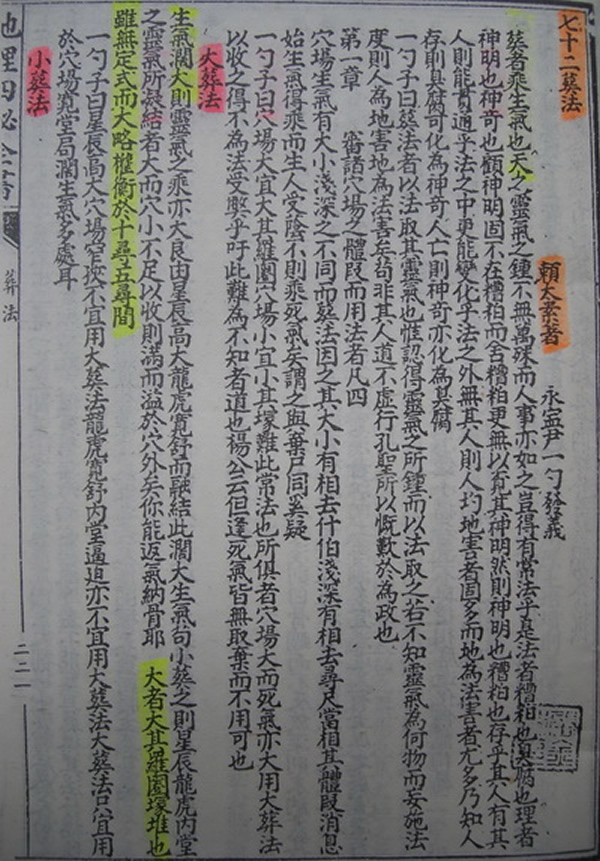 七十二葬法
賴太素著 永寧尹一勺發義
葬者乘生氣也天之靈氣之鍾不無萬殊而人事亦如之豈得有常法乎是法者糟粕也臭腐也理者
神明也神奇也顧神明固不在糟粕而舍糟粕更無以寛其神明然則神明也糟粕也存乎其人有其
人則能貫通乎法之中更能變化乎法之外無其人則人圴地害者固多而地為法害者尤多乃知人
存則臭腐可化為神奇人亡則神奇亦化為臭腐
一勺子曰葬法者以法取其靈氣也惟認得靈氣之所鍾而以法取之若不知靈氣為何物而妄施法
度則人為地害地為法害矣苟非其人道不虛行孔聖所以慨歎於為政也
第一章 審諸穴場之體段而用法者凡四
穴場生氣有大小淺深之不同而葬法因之其大小有相去什伯淺深有相去尋尺當相其體段消息
始生氣得乘而生人受蔭不則乘死氣矣謂之與棄尸同奚疑
一勺子曰穴場大宜大其羅圍穴場小宜小其塚難此常法也所俱者穴場大而死氣亦大用大葬法
以收之得不為法受憝乎吁此難為不知者道也楊公云但逢死氣皆無取棄而不用可也
大葬法
生氣濶大則靈氣之乘亦大良由星辰高大龍虎寬舒而融結此濶大生氣句小葬之則星辰龍虎內堂
之靈氣所凝結者大而穴小不足以收則滿而溢於穴外矣你能返氣納骨耶 大者大其羅圍塚堆也
雖無定式而大略權衡於十尋五尋間
一勺子曰星辰高大穴場窄狹不宜用大葬法龍虎寬舒內堂逼迫亦不宜用大葬法大葬法只宜用
於穴場寬堂局濶生氣多處耳
小葬法
地理囟秘全書
葬法
二二一